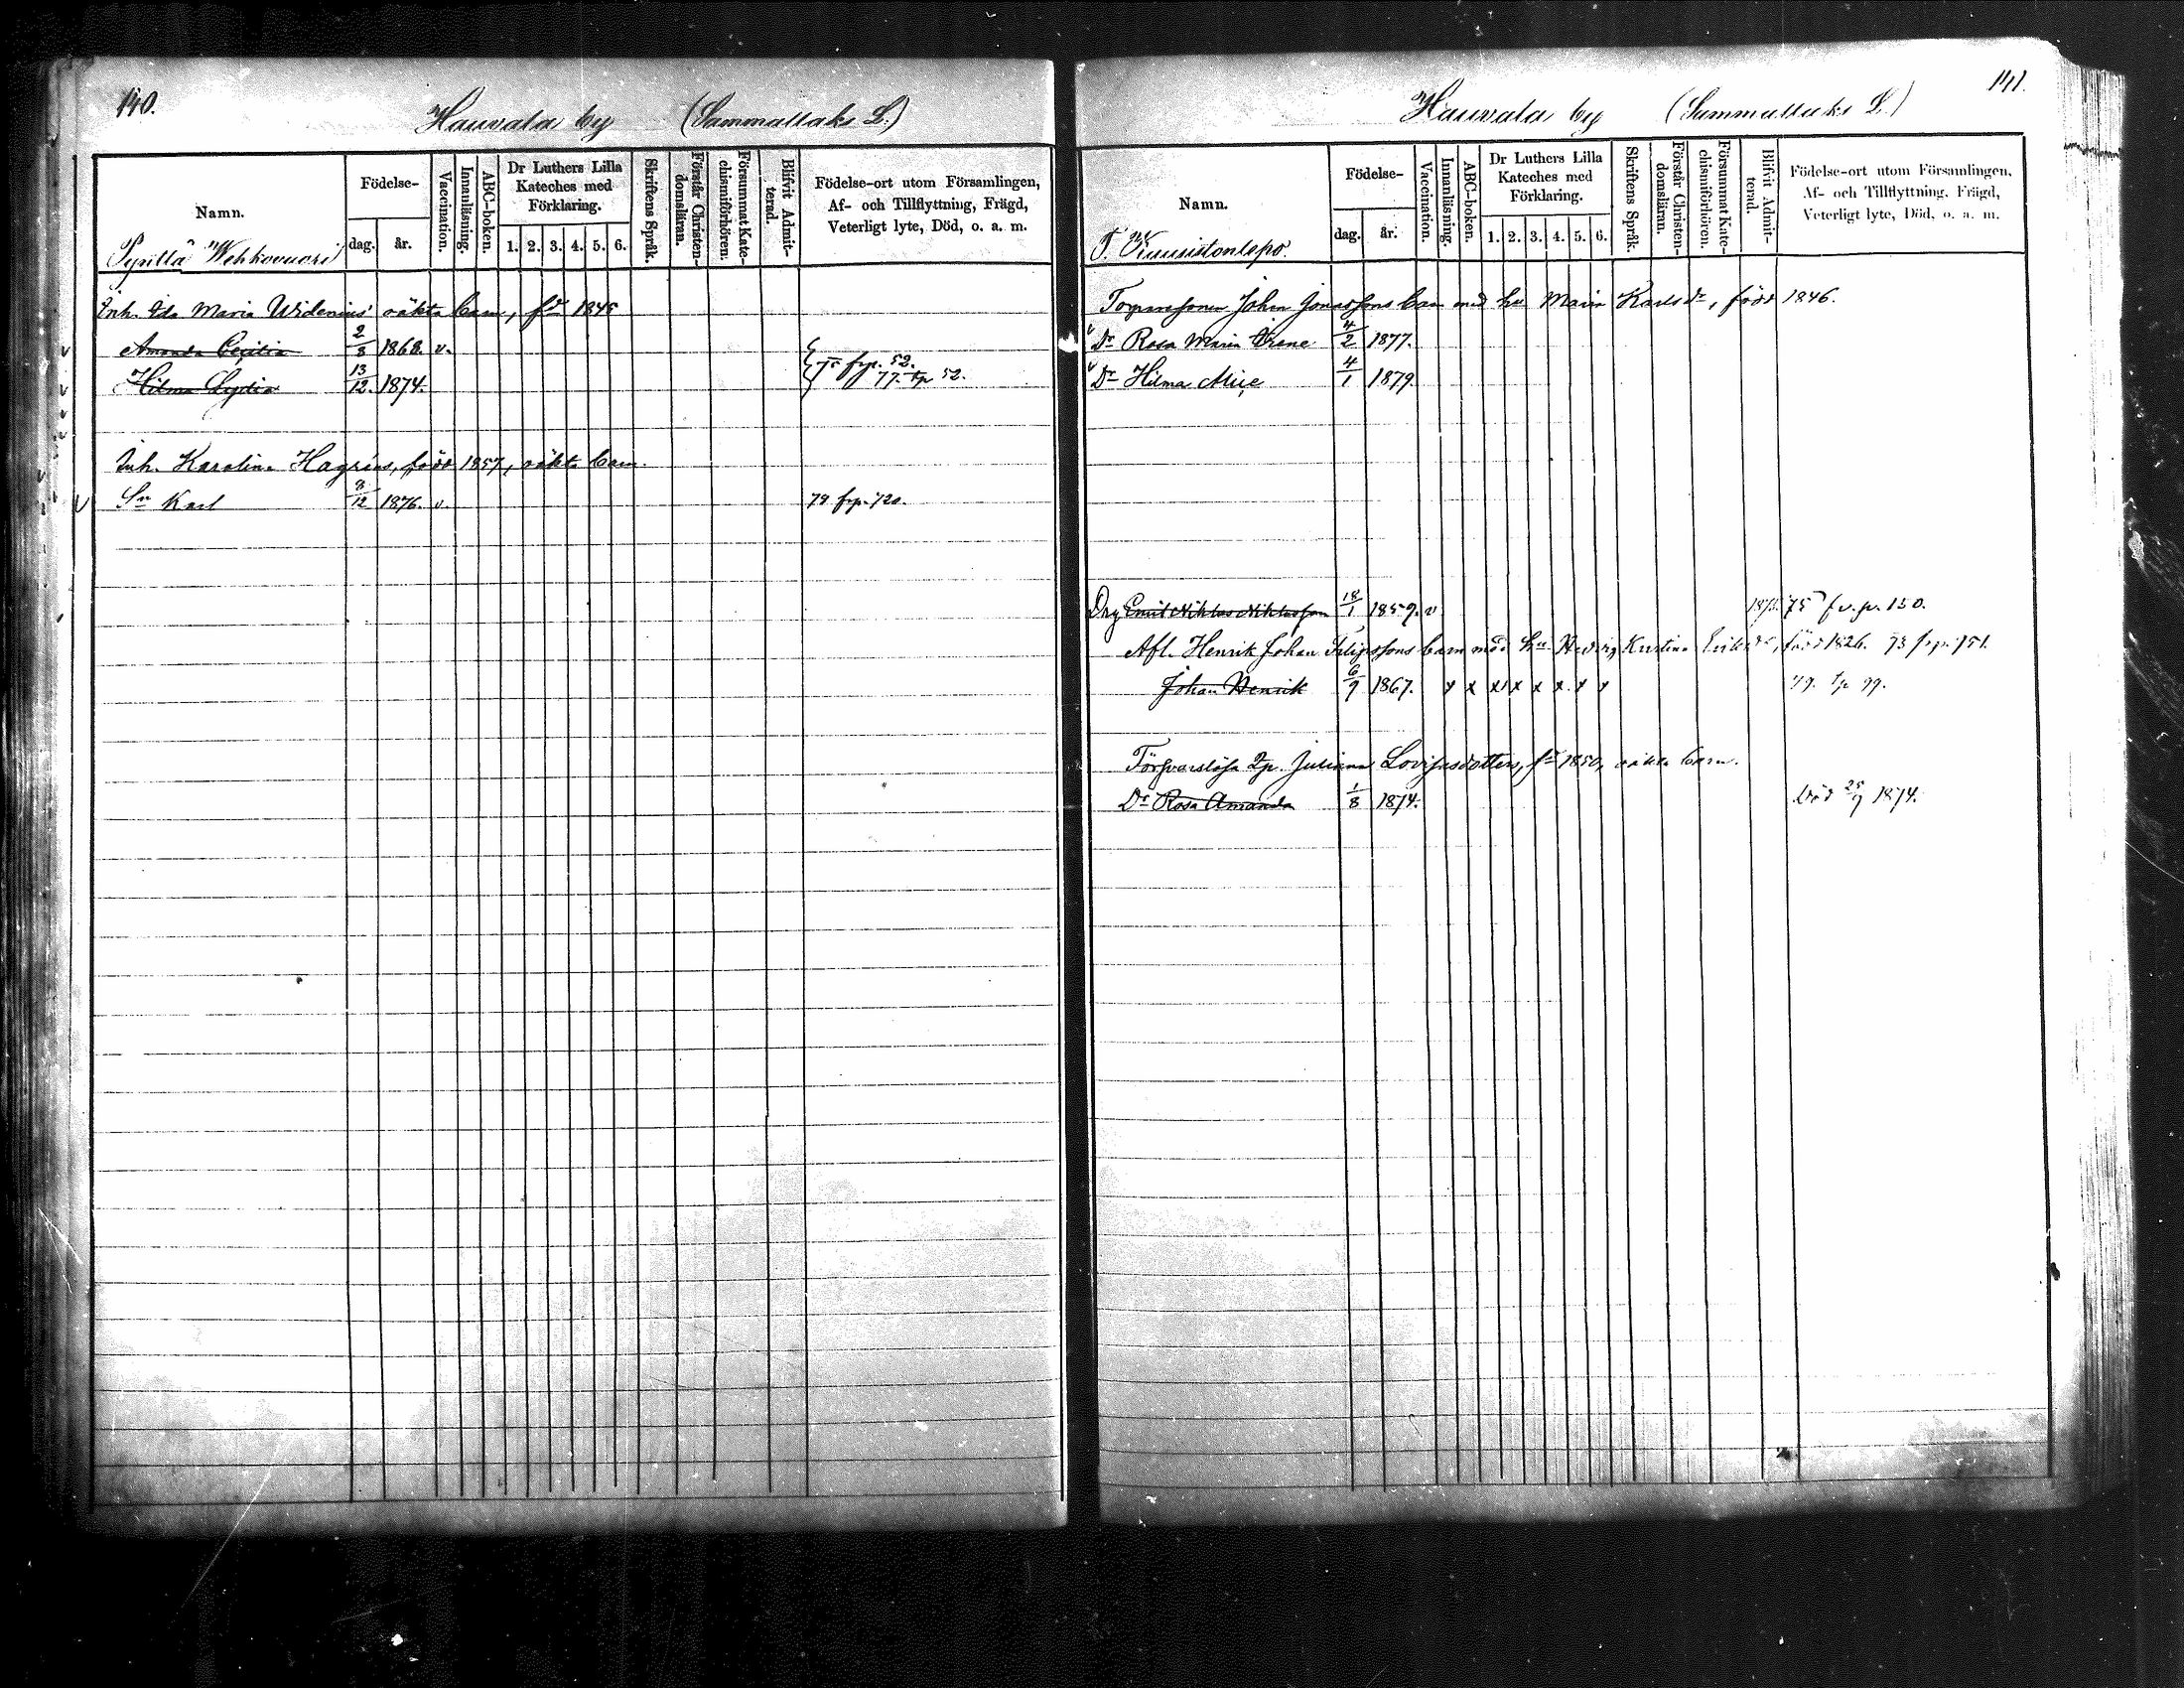 140.
Hauvala by (Sammallaks L.)
Namn.
Födelse-
dag.
år.
Vaccination.
Innanläsning.
ABC-boken.
Dr Luthers Lilla
Kateches med
Förklaring.
1. 2. 3. 4. 5. 6.
Skriftens Språk.
Förstår Christen-
domsläran.
Försummat Kate-
chismiförhören.
Blifvit Admit-
terad.
Födelse-ort utom Församlingen,
Af- och Tillflyttning, Frägd,
Veterligt lyte, Död, o. a. m.
Pyntlä Wehkovuori
Inh. Ida Maria Widenius' oäkta barn, fd 1845
Amanda Cecilia 2/8 1868. v. 75 frp. 52.
Hilma Lydia 13/12. 1874. 77. tp 52.
Inh. Karolina Hagréns, född 1857, oäkta barn.
Sn Karl 8/12 1876. v. 79 frp. 120.
141.
Hauvala by (Sammallaks L.)
Namn.
Födelse-
dag.
år.
Vaccination.
Innanläsning.
ABC-boken.
Dr Luthers Lilla
Kateches med
Förklaring.
1. 2. 3. 4. 5. 6.
Skriftens Språk.
Förstår Christen-
domsläran.
Försummat Kate-
chismiförhören.
Blifvit Admit-
terad.
Födelse-ort utom Församlingen,
Af- och Tillflyttning, Frägd,
Veterligt lyte, Död, o. a. m.
T. Kuusistonlepo.
Johan Jonassons barn med hu Maria Karlsdr, född 1846.
v Dr Rosa Maria Irene 4/2 1877.
v Dr Hilma Alice 4/1 1879
Drg Emil Niklas Niklasson 18/1 1859. v 75 fv. p. 150.
Afl. Henrik Johan Filipssons barn med hu Hedvig Kristina Eriksdr, född 1826. 73 frp. 151.
Johan Henrik 6/9 1867. x x x x x x x x 79. tp 99.
Försvarslösa Juliana Lovisasdotters, fd 1850, oäkta barn.
Dr Rosa Amanda 1/8 1874. Död 25/9 1874.